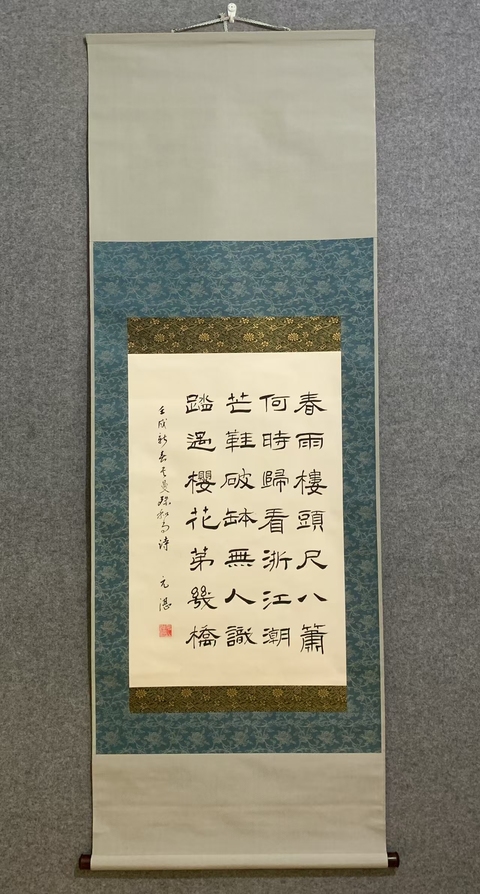 春雨樓頭尺八簫
何時歸看浙江潮
芒鞋破缽無人識
踏過櫻花第幾橋
壬戌新春書曼殊和尚詩 元湛